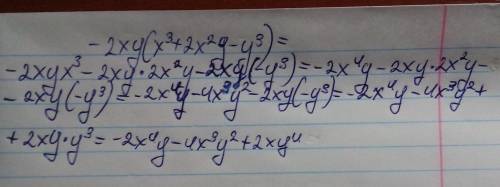 -2xy(x³+2x²y-y³)=
-2xyx³-2xy·2x²y-2xy(-y³)=-2x⁴y-2xy·2x²y-
-2xy(-y³)=-2x⁴y-4x³y²-2xy(-y³)=-2x⁴y-4x³y²+
+2xy·y³=-2x⁴y-4x³y²+2xy⁴